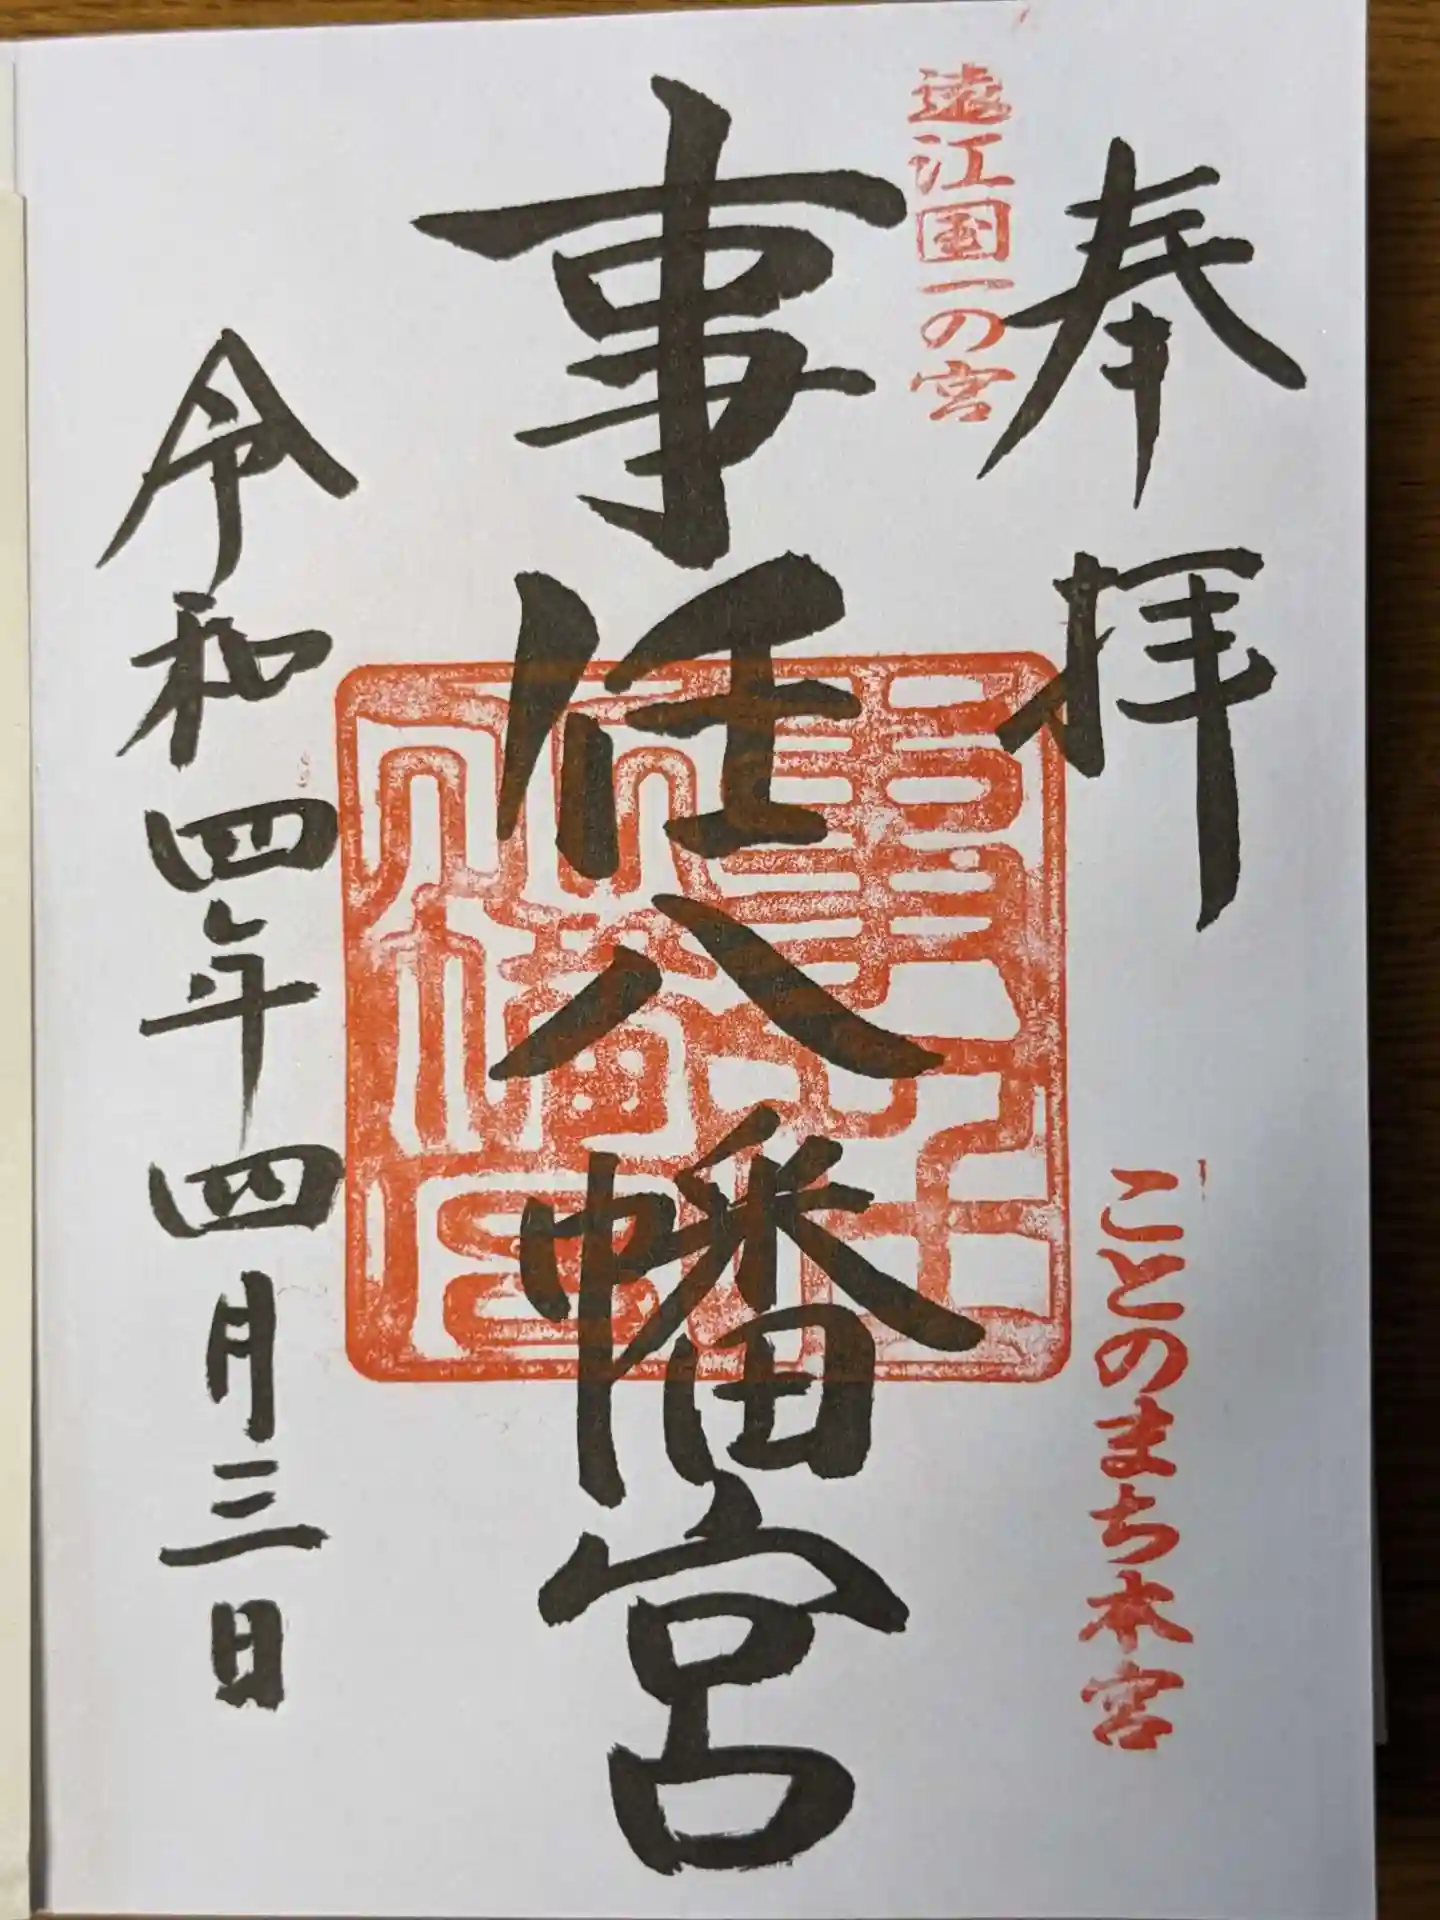 奉拝
ことのまち本宮
遠江国一の宮
事任八幡宮
事任八幡宮
令和四年四月三日